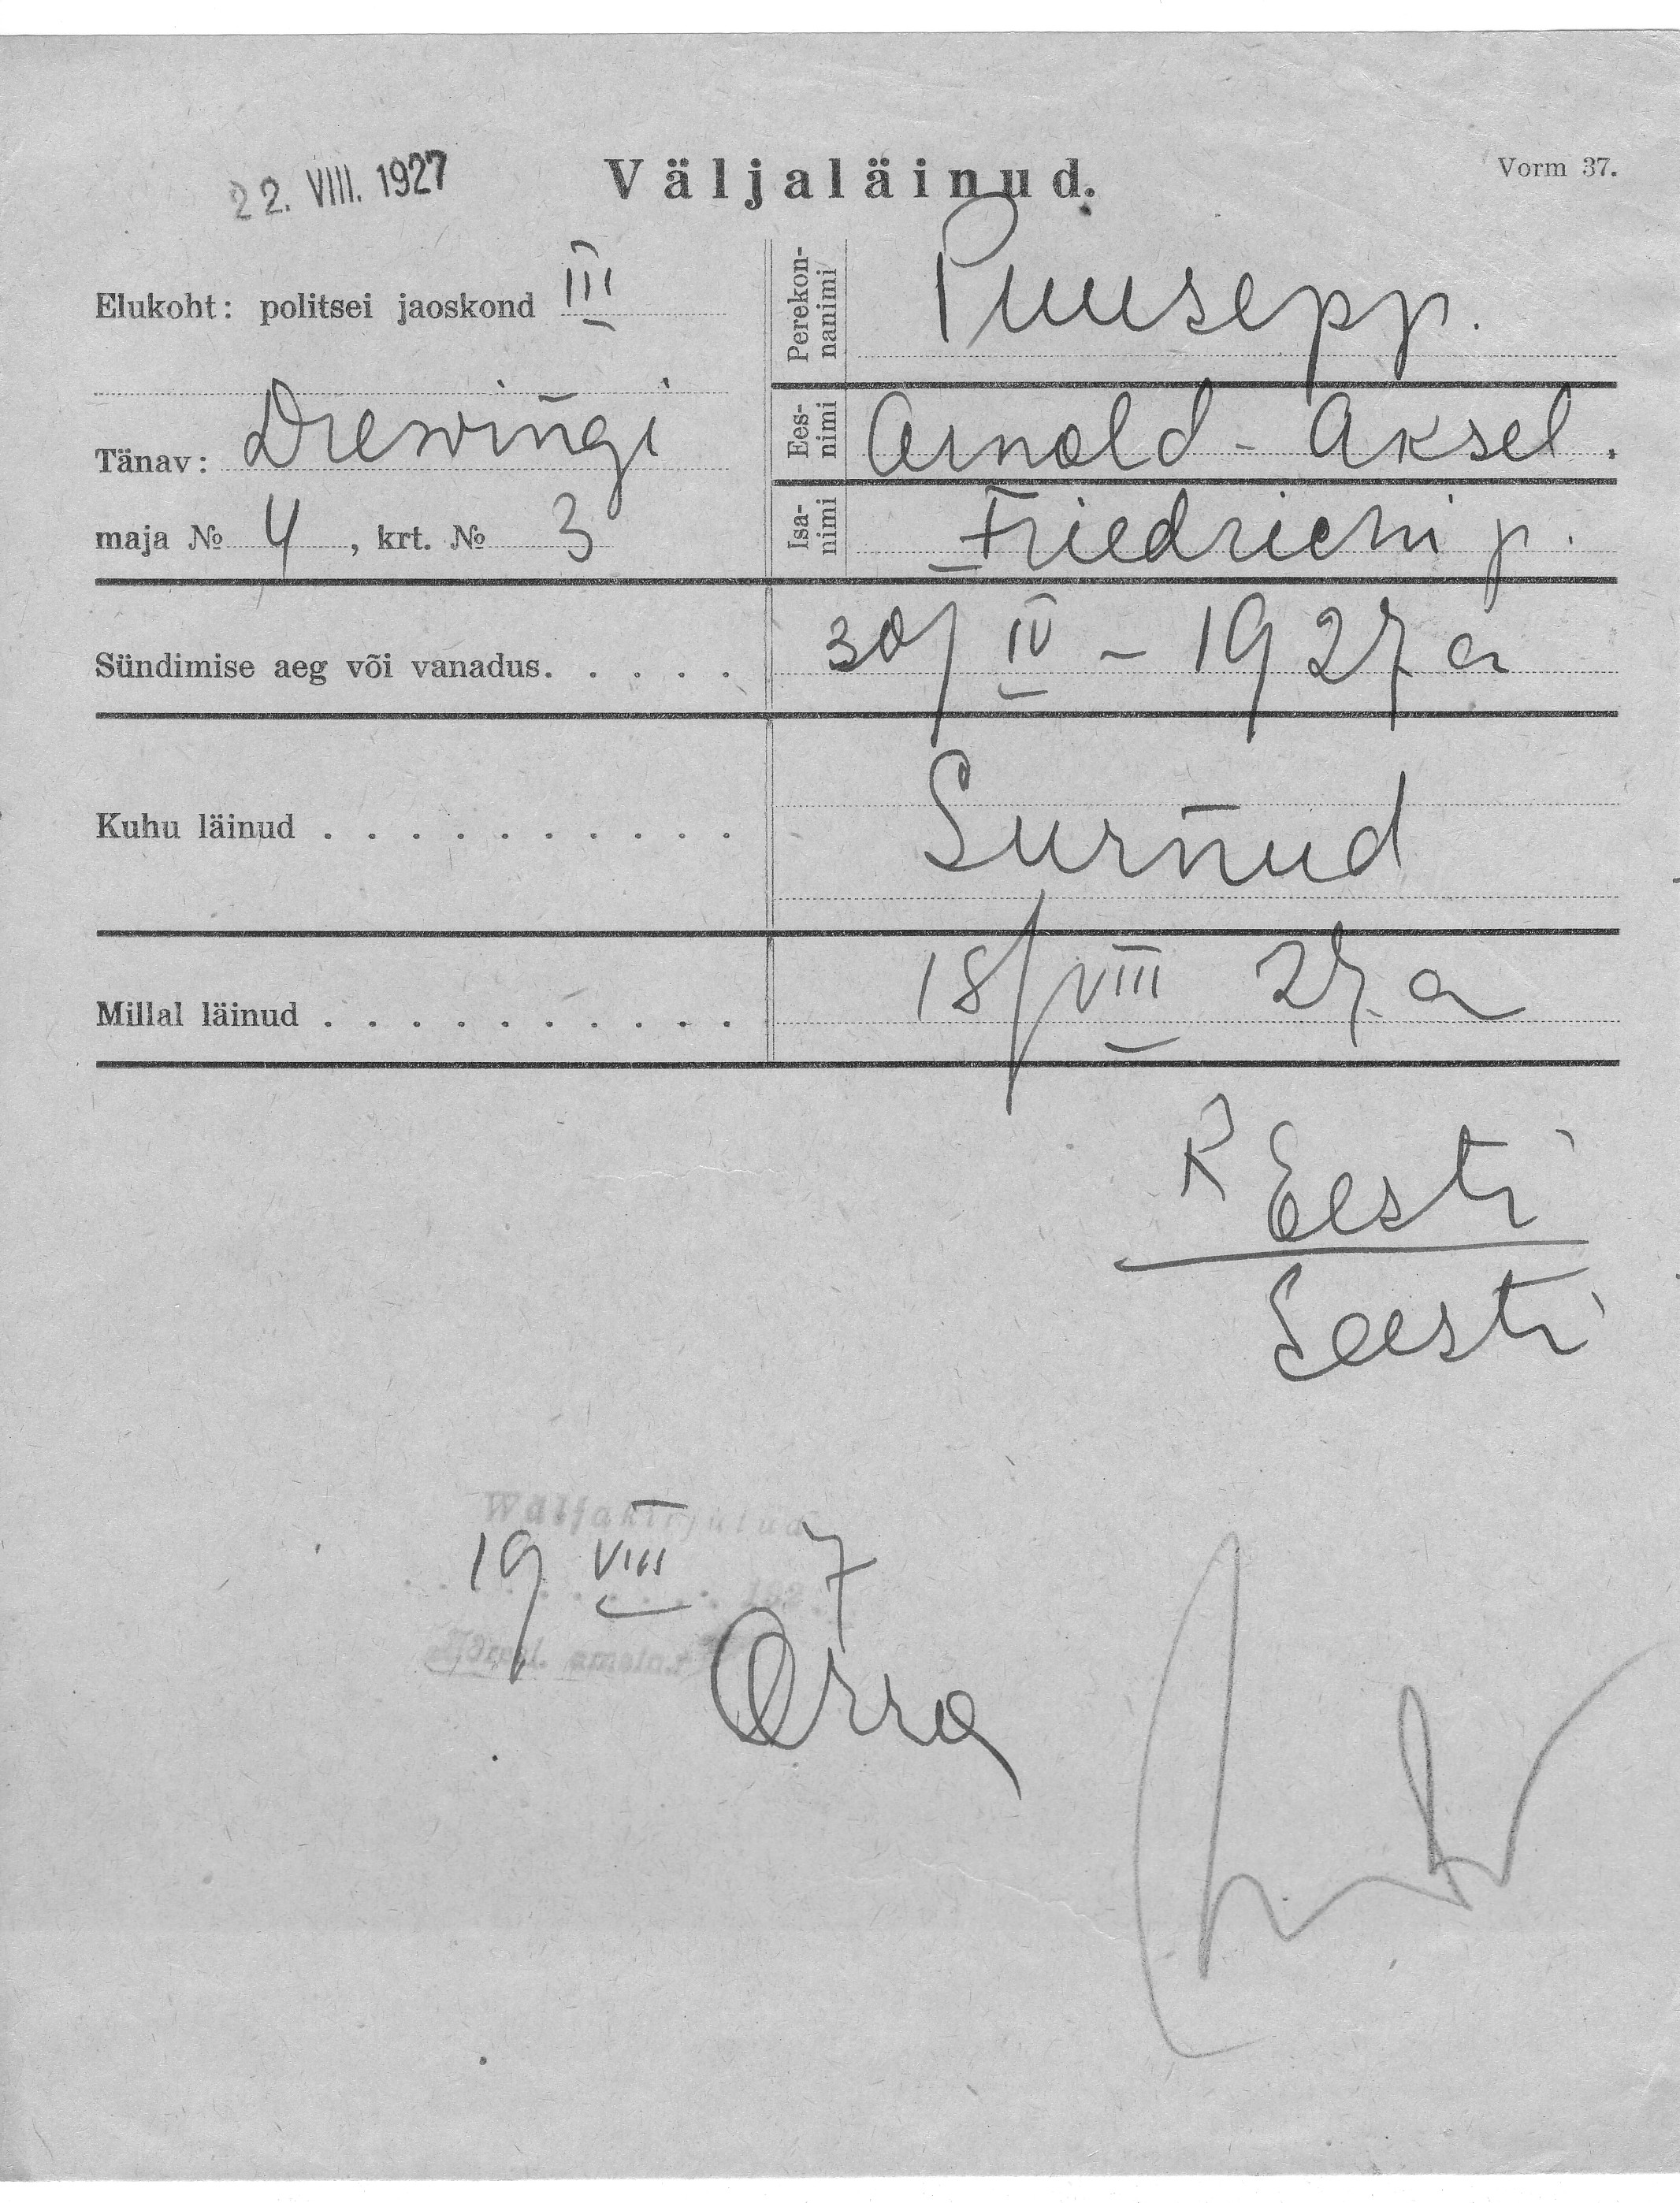 22. VIII. 1927
Väljaläinud.
Vorm 37.
Elukoht: politsei jaoskond III
Tänav: Drewingi
maja № 4, krt. № 3
Perekon-
nanimi
Puusepp.
Ees-
nimi
Arnold-Aksel.
Isa-
nimi
Friedrichi p.
Sündimise aeg või vanadus. . . . . . 30/IV - 1927 a
Kuhu läinud . . . . . . . . . . Surnud
Millal läinud . . . . . . . . . . 18/VIII 27. a
R Eesti
Eesti
Wäljakirjutud
19 VIII 192 7
ametn.
Orra